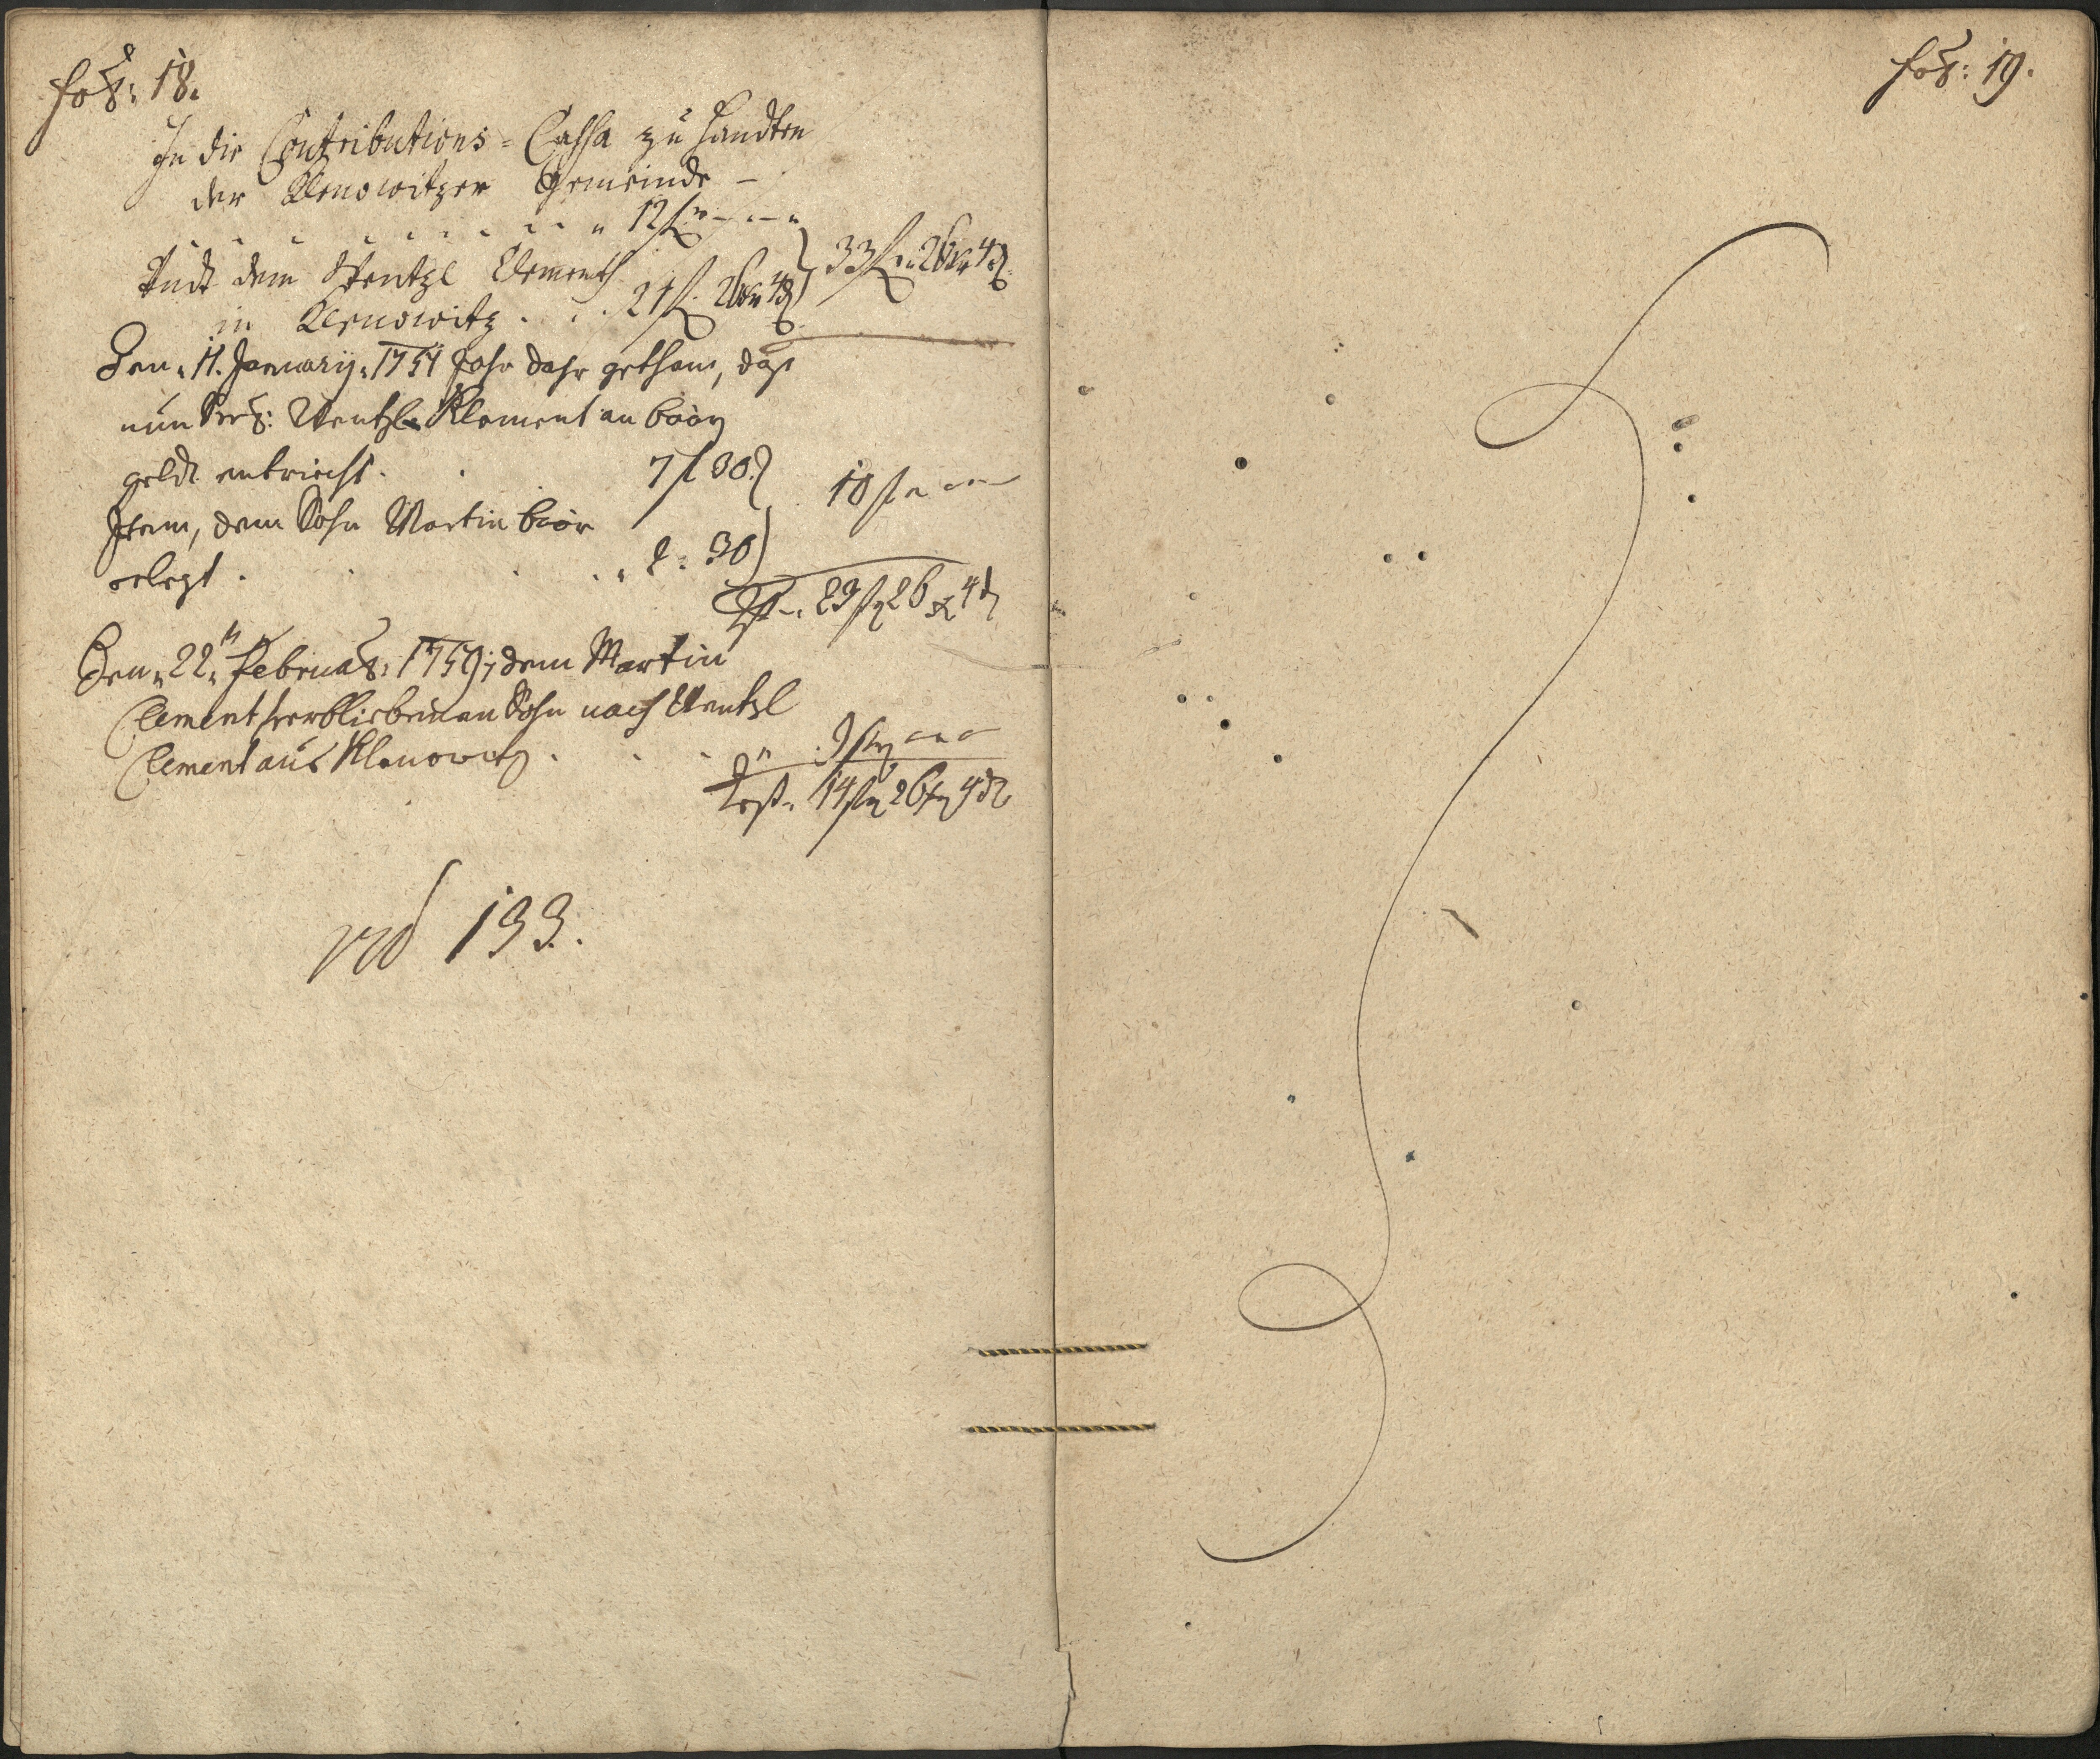 fol: 18.
In die Contributions-Cassa zu handten
der Klenowitzer Gemeinde –
12 f " – " – "
Undt dem Wentzl Clementh
in Klenowitz . . . 21 f. 26 kr 4 d } 33 f " 26 kr 4 d
Den 11. January 1751 Jahr dahr gethan, daß
nun Wentzl Klement an baar
geldt entricht. 7 f 30 }
Item, dem Sohn Martin baar 10 f " — "
erlegt . . . . " 2 : 30 }
Rest " 23 f 26 kr 4 d
Den 22ten Februar: 1759 dem Martin
Clement verbliebenen Sohn nach Wentzl
Clement aus Klenowitz . . . 9 f — —
Rest " 14 f 26 kr 4 d
133.
fol: 19.